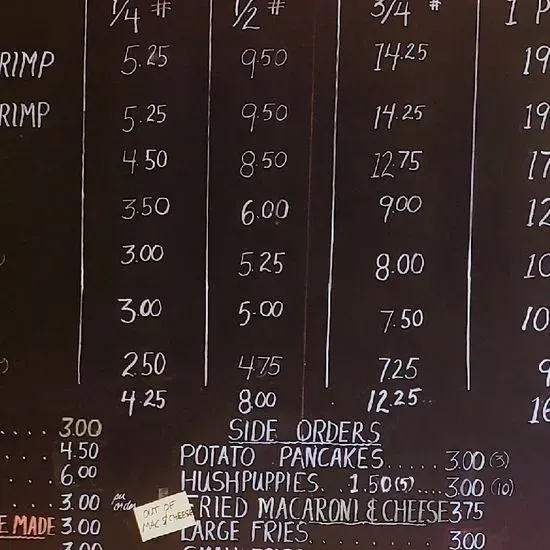 1/4 # 1/2 # 3/4 # 1 P
RIMP 5.25 9.50 14.25 19
RIMP 5.25 9.50 14.25 19
4.50 8.50 12.75 17
3.50 6.00 9.00 12
3.00 5.25 8.00 10
3.00 5.00 7.50 10
2.50 4.75 7.25 9
4.25 8.00 12.25 16
.... 3.00 SIDE ORDERS
. 4.50 POTATO PANCAKES..... 3.00 (3)
. 6.00 HUSHPUPPIES. .1.50(5)....3.00 (10)
. 3.00 per order OUT OF MAC & CHEESE FRIED MACARONI & CHEESE 375
E MADE 3.00 LARGE FRIES. 3.00